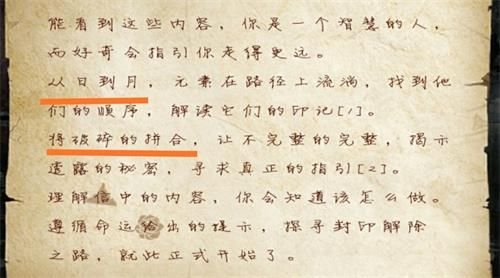 能看到这些内容，你是一个智慧的人，
而好奇会指引你走得更远。
从日到月，元素在路径上流淌，找到他
们的顺序，解读它们的印记[1]。
将破碎的拼合，让不完整的完整，揭示
遗露的秘密，寻求真正的指引[2]。
理解信中的内容，你会知道该怎么做。
遵循命运给出的提示，探寻封印解除
之路，就此正式开始了。